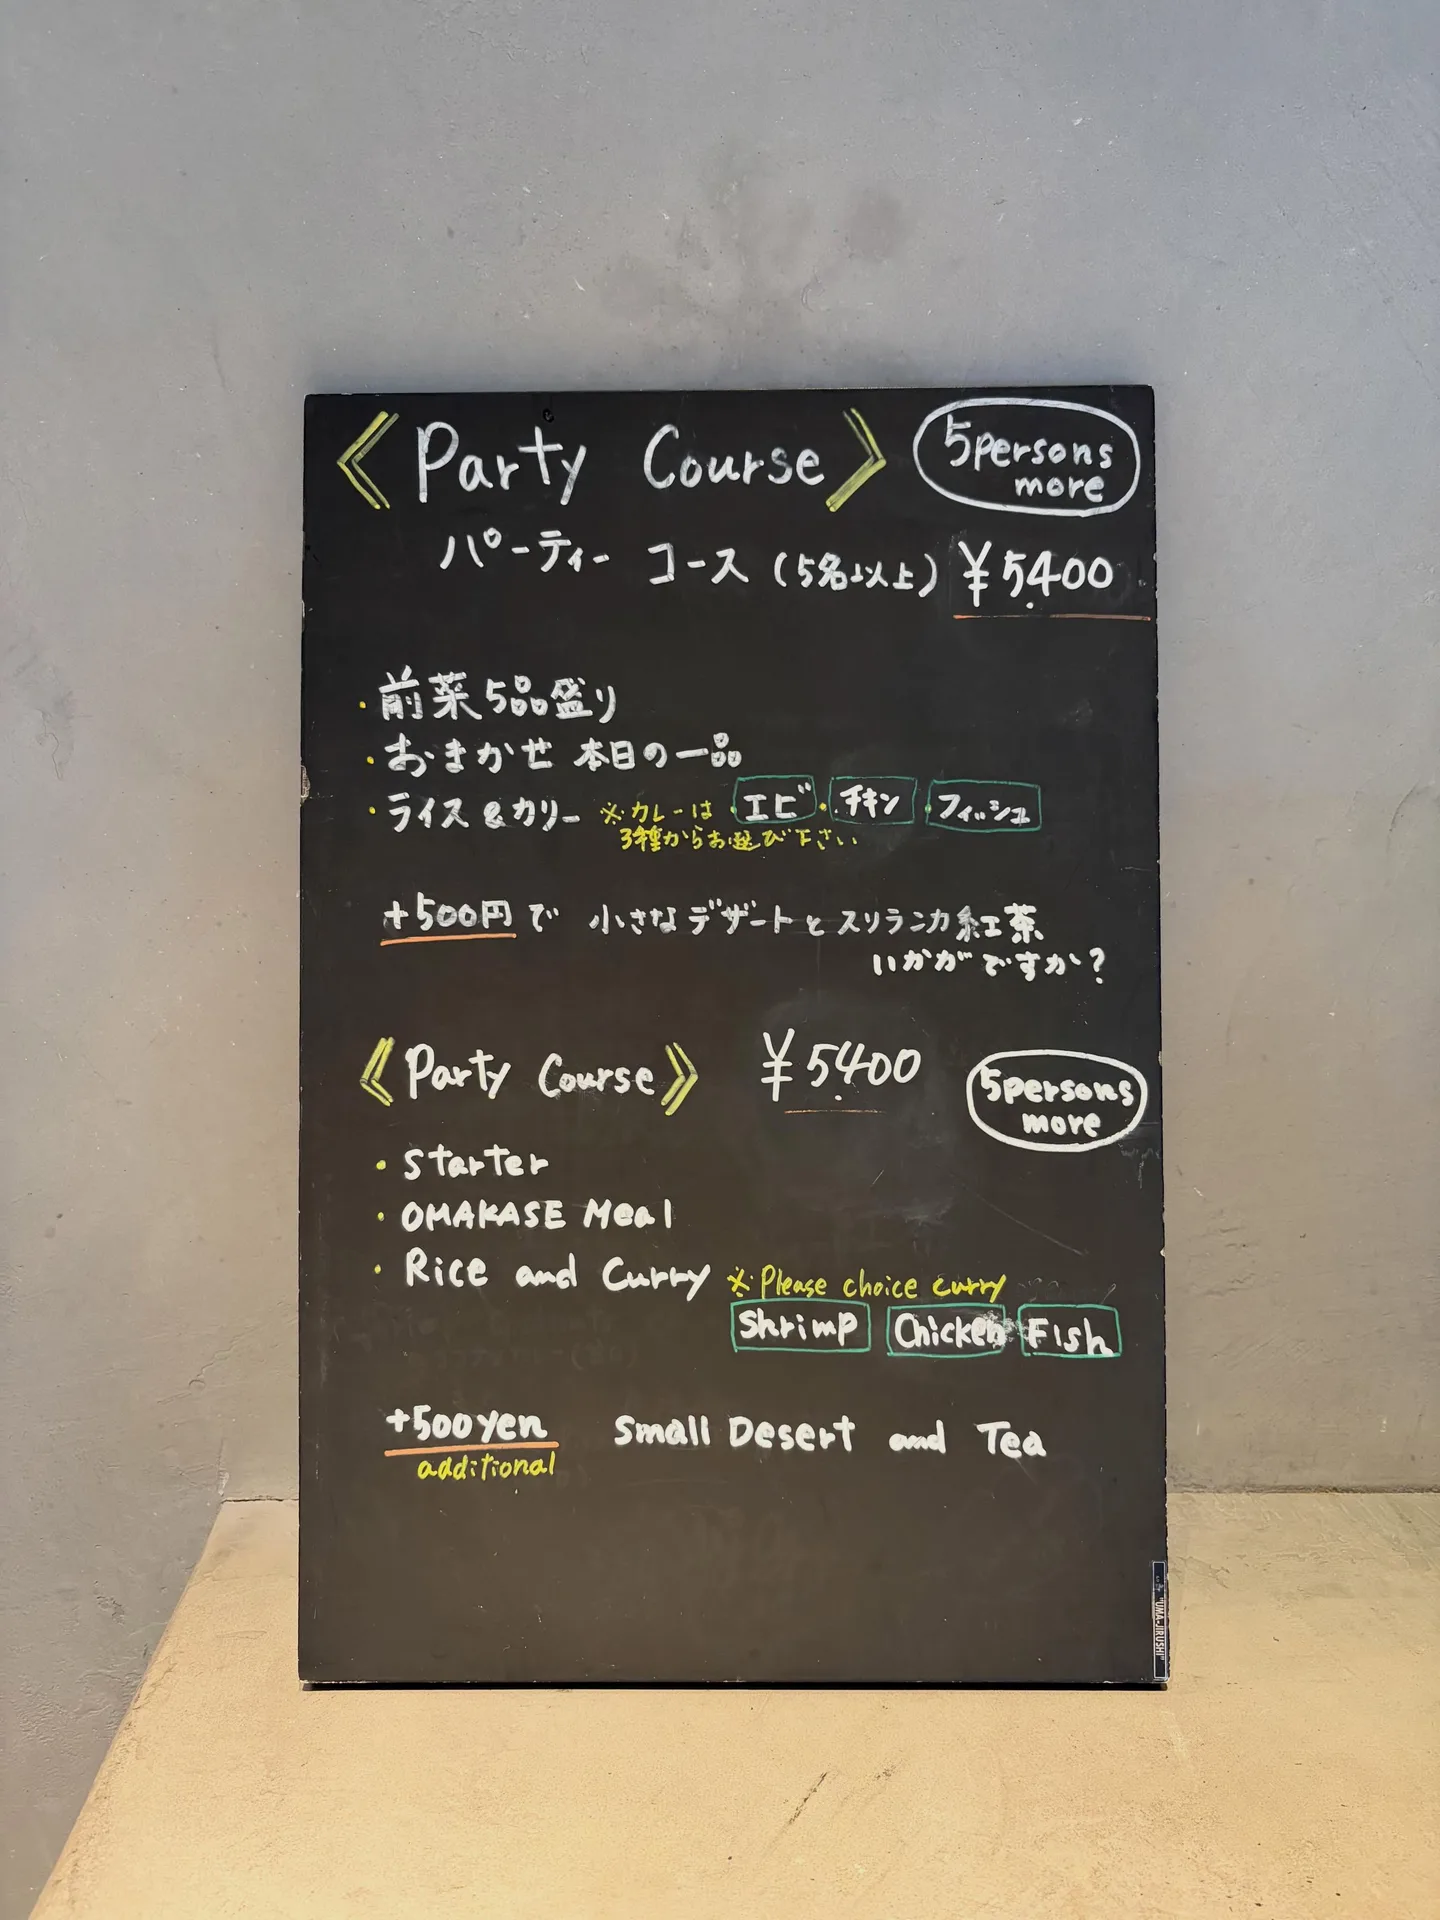 《Party Course》 5persons more
パーティー コース (5名以上) ¥5400
・前菜5品盛り
・おまかせ 本日の一品
・ライス&カリー ※カレーは ・エビ・チキン・フィッシュ
3種からお選び下さい
+500円で 小さなデザートとスリランカ紅茶
いかがですか?
《Party Course》 ¥5400 5persons more
・Starter
・OMAKASE Meal
・Rice and Curry ※Please choice curry
Shrimp Chicken Fish
+500yen Small Desert and Tea
additional
"UMAJIRUSHI"